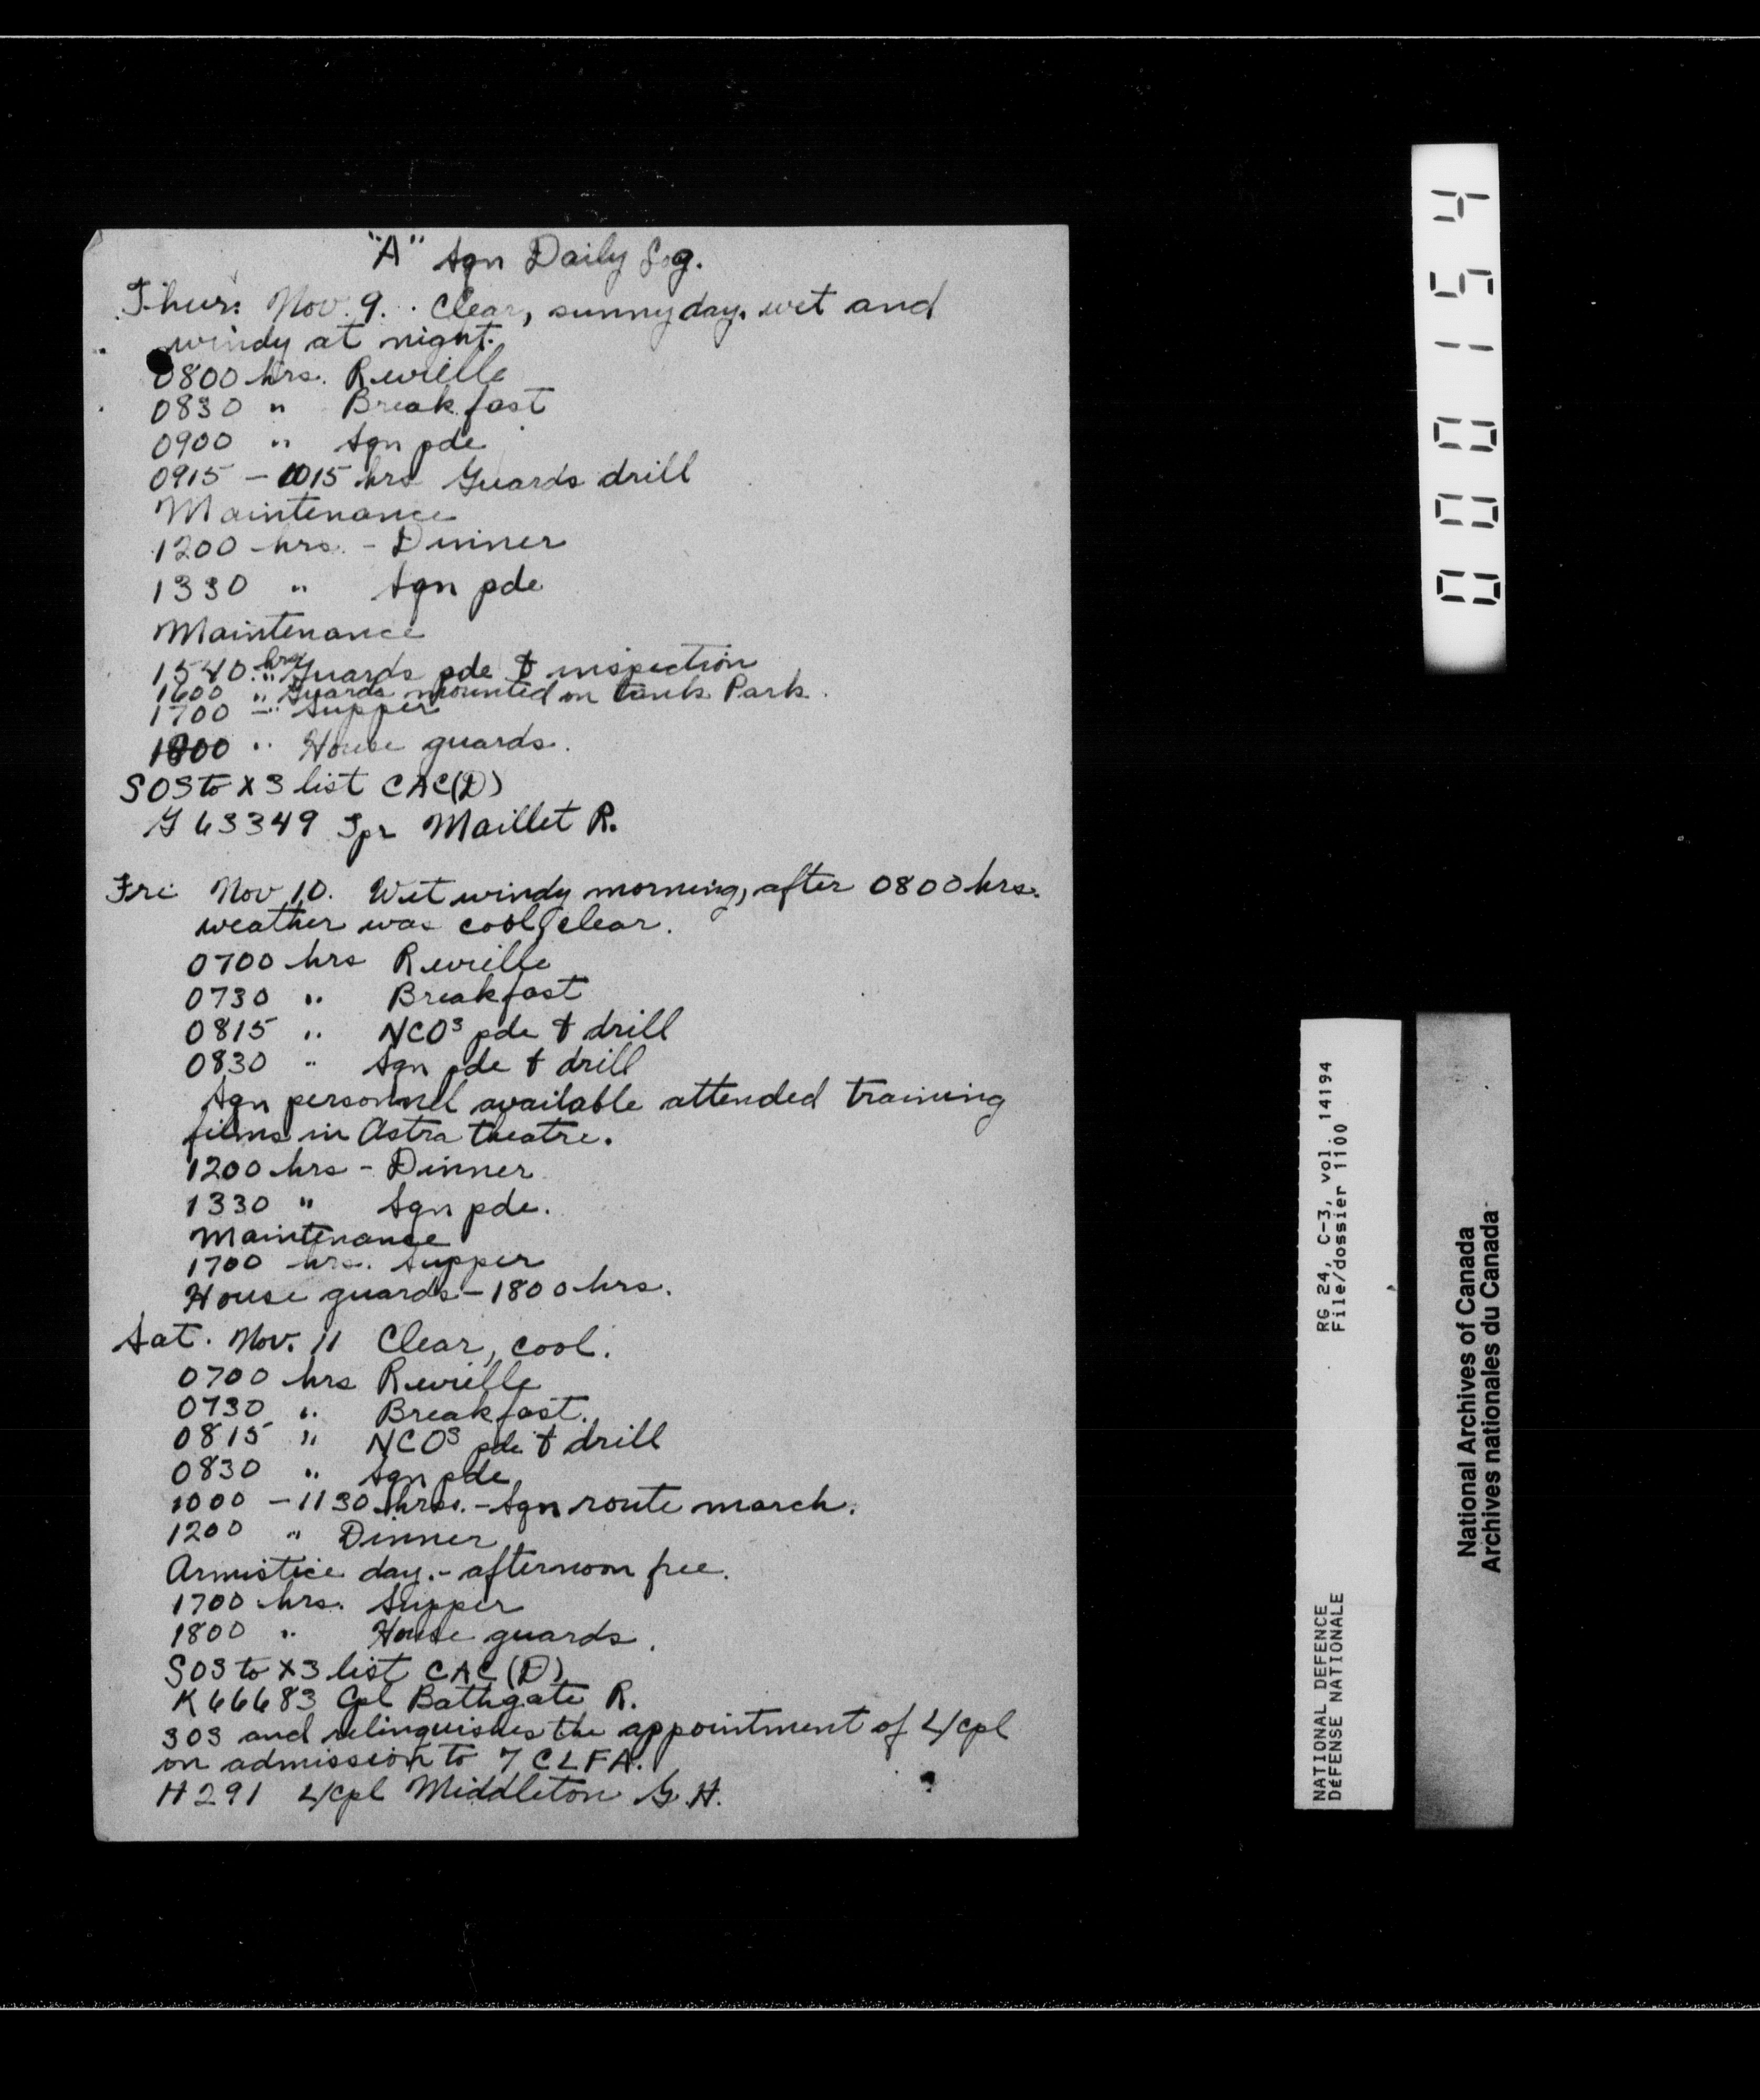 "A" Sqn Daily Log.
Thurs Nov. 9. Clear, sunny day. wet and
windy at night.
0800 hrs. Reveille
0830 " Breakfast
0900 " Sqn pde
0915 – 1015 hrs Guards drill
Maintenance
1200 hrs. – Dinner
1330 " Sqn pde
Maintenance
1540 hrs Guards pde & inspection
1600 " Guards mounted on tank Park.
1700 – " Supper
1800 " House guards.
SOS to X3 list CAC(D)
G 63349 Spr Maillet R.
Fri Nov 10. Wet windy morning, after 0800 hrs.
weather was cool, clear.
0700 hrs Reveille
0730 " Breakfast
0815 " NCOs pde & drill
0830 " Sqn pde & drill
Sqn personnel available attended training
films in Astra theatre.
1200 hrs – Dinner
1330 " Sqn pde.
Maintenance
1700 hrs. Supper
House guards – 1800 hrs.
Sat. Nov. 11 Clear, cool.
0700 hrs Reveille
0730 " Breakfast.
0815 " NCOs pde & drill
0830 " Sqn pde
1000 – 1130 hrs. – Sqn route march.
1200 " Dinner
Armistice day. – afternoon free.
1700 hrs. Supper
1800 " House guards.
SOS to X3 list CAC (D)
K 66683 Cpl Bathgate R.
SOS and relinquishes the appointment of L/Cpl
on admission to 7 CLFA.
H 291 L/Cpl Middleton G.H.
000154
RG 24, C-3, vol. 14194
File/dossier 1100
NATIONAL DEFENCE
DÉFENSE NATIONALE
National Archives of Canada
Archives nationales du Canada